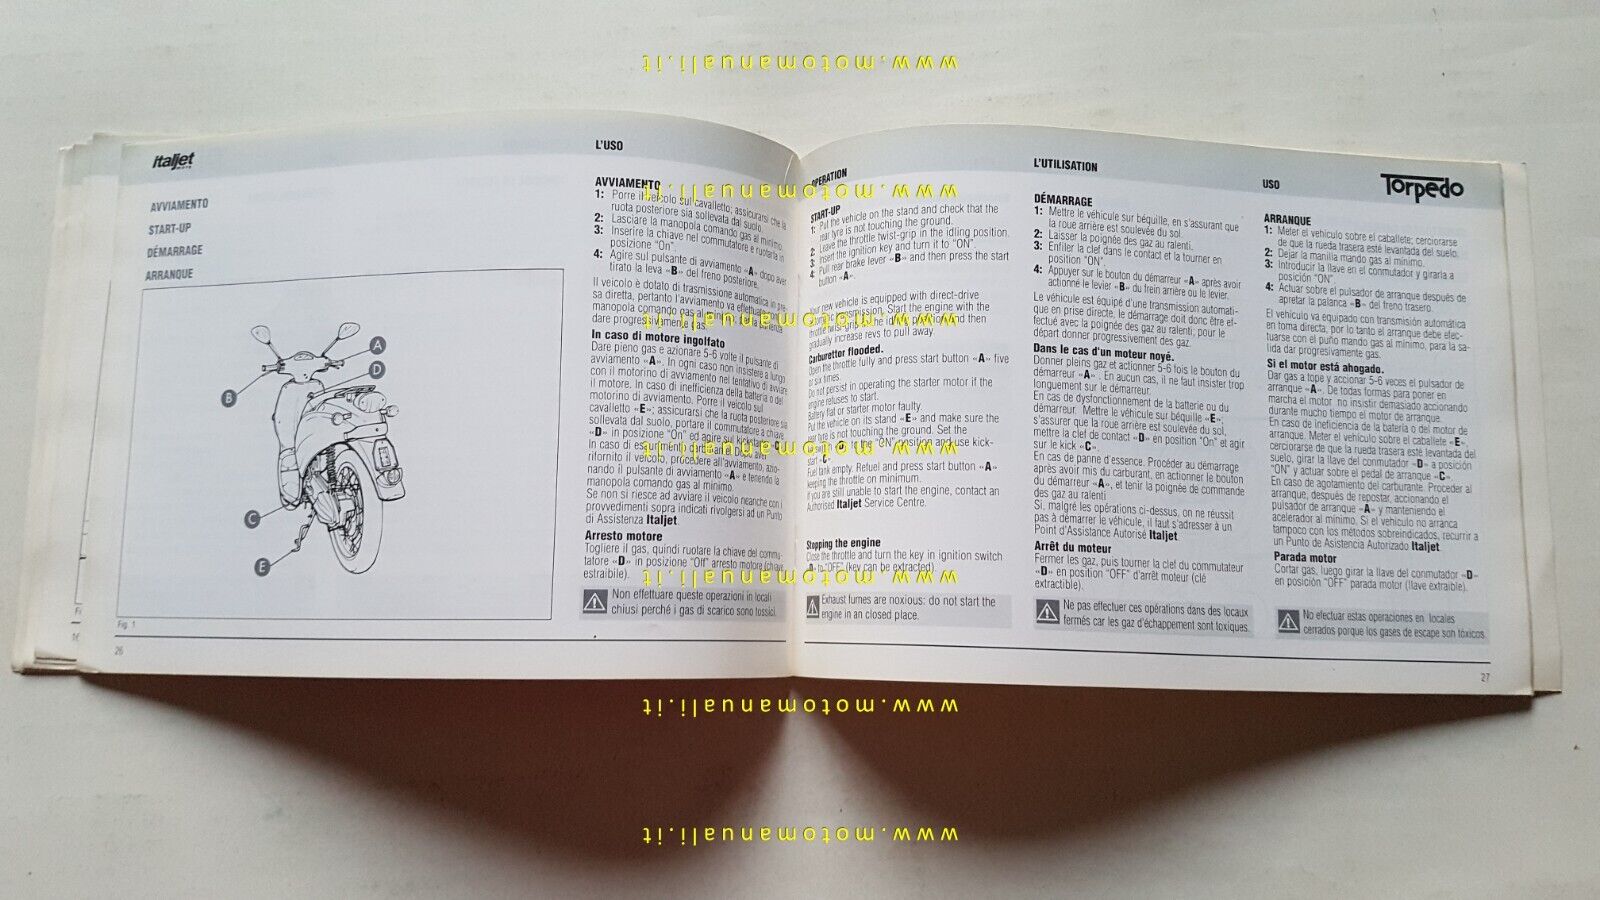 italjet
MOTO
AVVIAMENTO
START-UP
DÉMARRAGE
ARRANQUE
A
D
B
C
E
Fig. 1
26
L'USO
AVVIAMENTO
1: Porre il veicolo sul cavalletto; assicurarsi che la
ruota posteriore sia sollevata dal suolo.
2: Lasciare la manopola comando gas al minimo.
3: Inserire la chiave nel commutatore e ruotarla in
posizione "On".
4: Agire sul pulsante di avviamento «A» dopo aver
tirato la leva «B» del freno posteriore.
Il veicolo è dotato di trasmissione automatica in pre-
sa diretta, pertanto l'avviamento va effettuato
manopola comando gas al minimo, per la partenza
dare progressivamente gas.
In caso di motore ingolfato
Dare pieno gas e azionare 5-6 volte il pulsante di
avviamento «A». In ogni caso non insistere a lungo
con il motorino di avviamento nel tentativo di avviare
il motore. In caso di inefficienza della batteria o del
motorino di avviamento. Porre il veicolo sul
cavalletto «E»; assicurarsi che la ruota posteriore sia
sollevata dal suolo, portare il commutatore a chiave
«D» in posizione "On" ed agire sul
In caso di esaurimento di
rifornito il veicolo, procedere all'avviamento, azio-
nando il pulsante di avviamento «A» e tenendo la
manopola comando gas al minimo.
Se non si riesce ad avviare il veicolo neanche con i
provvedimenti sopra indicati rivolgersi ad un Punto
di Assistenza Italjet.
Arresto motore
Togliere il gas, quindi ruotare la chiave del commu-
tatore «D» in posizione "Off" arresto motore (chiave
estraibile).
Non effettuare queste operazioni in locali
chiusi perché i gas di scarico sono tossici.
OPERATION
START-UP
1: Put the vehicle on the stand and check that the
rear tyre is not touching the ground.
2: Leave the throttle twist-grip in the idling position.
3: Insert the ignition key and turn it to "ON".
4: Pull rear brake lever «B» and then press the start
button «A».
Your new vehicle is equipped with direct-drive
transmission. Start the engine with the
throttle twist-grip in the idle position and then
gradually increase revs to pull away.
Carburettor flooded.
Open the throttle fully and press start button «A» five
or six times.
Do not persist in operating the starter motor if the
engine refuses to start.
Battery flat or starter motor faulty.
Put the vehicle on its stand «E» and make sure the
rear tyre is not touching the ground. Set the
to the "ON" position and use kick-
start «C».
Fuel tank empty. Refuel and press start button «A»
keeping the throttle on minimum.
If you are still unable to start the engine, contact an
Authorised Italjet Service Centre.
Stopping the engine
Close the throttle and turn the key in ignition switch
to "OFF" (key can be extracted).
Exhaust fumes are noxious: do not start the
engine in an closed place.
L'UTILISATION
DÉMARRAGE
1: Mettre le véhicule sur béquille, en s'assurant que
la roue arrière est soulevée du sol.
2: Laisser la poignée des gaz au ralenti.
3: Enfiler la clef dans le contact et la tourner en
position "ON".
4: Appuyer sur le bouton du démarreur «A» après avoir
actionné le levier «B» du frein arrière ou le levier.
Le véhicule est équipé d'une transmission automati-
que en prise directe, le démarrage doit donc être ef-
fectué avec la poignée des gaz au ralenti; pour le
départ donner progressivement des gaz.
Dans le cas d'un moteur noyé.
Donner pleins gaz et actionner 5-6 fois le bouton du
démarreur «A» . En aucun cas, il ne faut insister trop
longuement sur le démarreur.
En cas de dysfonctionnement de la batterie ou du
démarreur. Mettre le véhicule sur béquille «E»;
s'assurer que la roue arrière est soulevée du sol,
mettre la clef de contact «D» en position "On" et agir
sur le kick «C».
En cas de panne d'essence. Procéder au démarrage
après avoir mis du carburant, en actionner le bouton
du démarreur «A», et tenir la poignée de commande
des gaz au ralenti
Si, malgré les opérations ci-dessus, on ne réussit
pas à démarrer le véhicule, il faut s'adresser à un
Point d'Assistance Autorisé Italjet.
Arrêt du moteur
Fermer les gaz, puis tourner la clef du commutateur
«D» en position "OFF" d'arrêt moteur (clé
extractible).
Ne pas effectuer ces opérations dans des locaux
fermés car les gaz d'échappement sont toxiques.
USO
Torpedo
ARRANQUE
1: Meter el vehículo sobre el caballete; cerciorarse
de que la rueda trasera esté levantada del suelo.
2: Dejar la manilla mando gas al mínimo.
3: Introducir la llave en el conmutador y girarla a
posición "ON".
4: Actuar sobre el pulsador de arranque después de
apretar la palanca «B» del freno trasero.
El vehículo va equipado con transmisión automática
en toma directa, por lo tanto el arranque debe efec-
tuarse con el puño mando gas al mínimo, para la sa-
lida dar progresivamente gas.
Si el motor está ahogado.
Dar gas a tope y accionar 5-6 veces el pulsador de
arranque «A». De todas formas para poner en
marcha el motor no insistir demasiado accionando
durante mucho tiempo el motor de arranque.
En caso de ineficiencia de la batería o del motor de
arranque. Meter el vehículo sobre el caballete «E»,
cerciorarse de que la rueda trasera esté levantada del
suelo, girar la llave del conmutador «D» a posición
"ON" y actuar sobre el pedal de arranque «C».
En caso de agotamiento del carburante. Proceder al
arranque, después de repostar, accionando el
pulsador de arranque «A» y manteniendo el
acelerador al mínimo. Si el vehículo no arranca
tampoco con los métodos sobreindicados, recurrir a
un Punto de Asistencia Autorizado Italjet.
Parada motor
Cortar gas, luego girar la llave del conmutador «D»
en posición "OFF" parada motor (llave extraible).
No efectuar estas operaciones en locales
cerrados porque los gases de escape son tóxicos.
27
www.motomanuali.it
www.motomanuali.it
www.motomanuali.it
www.motomanuali.it
www.motomanuali.it
www.motomanuali.it
www.motomanuali.it